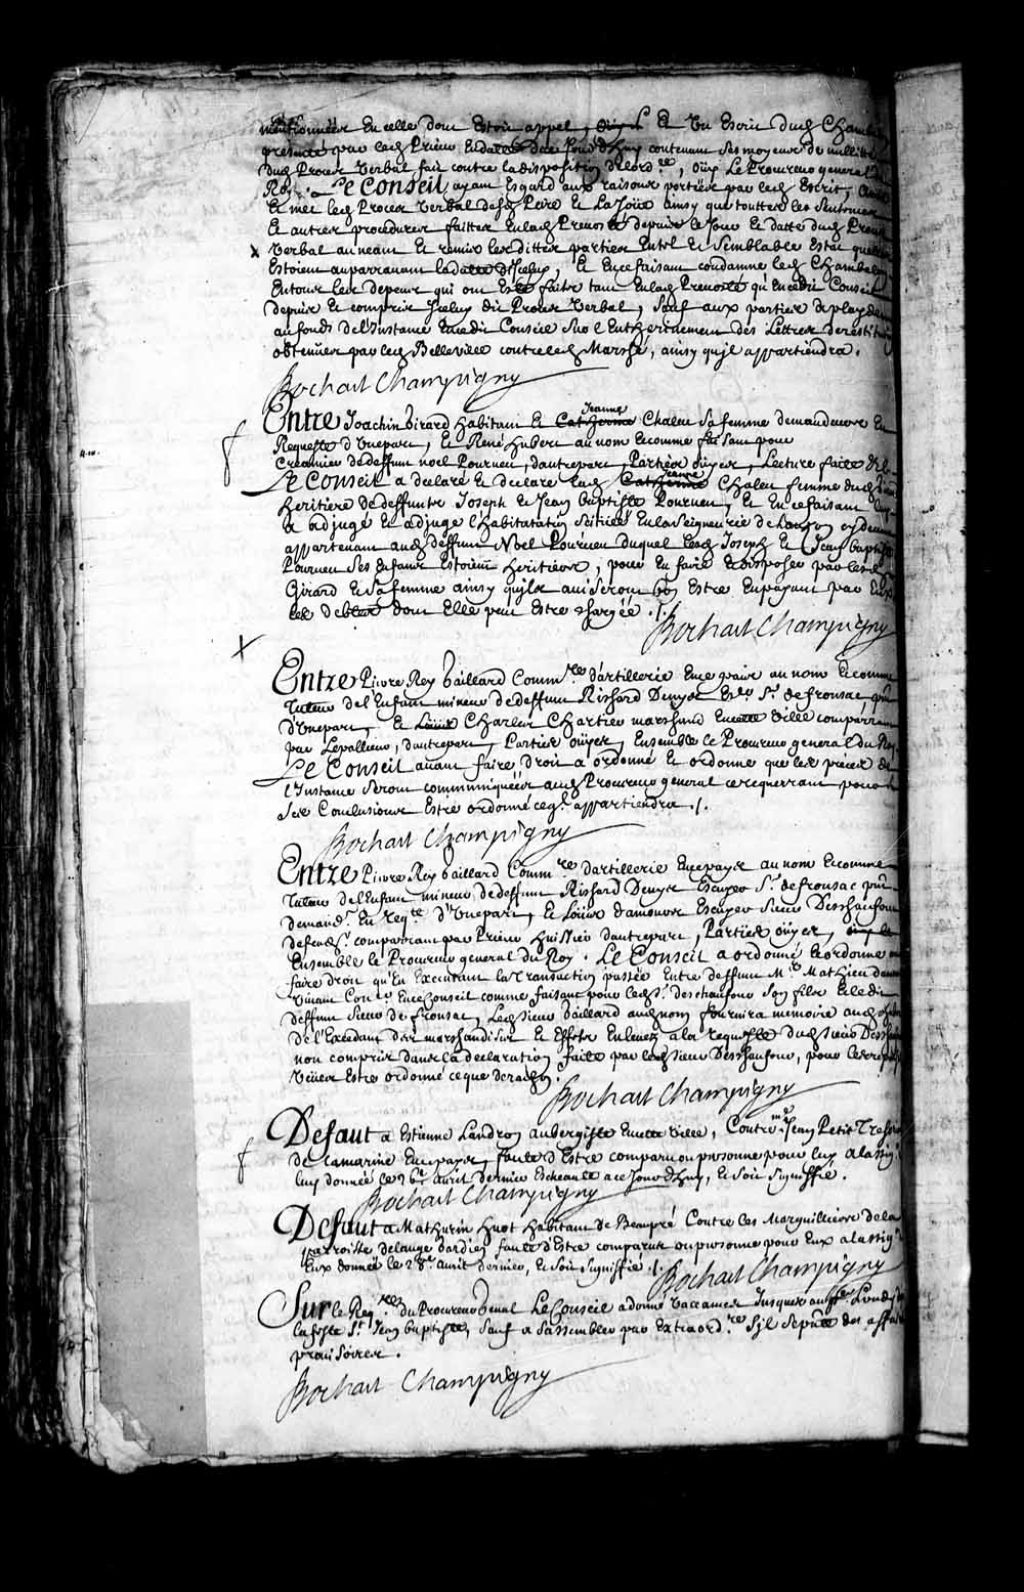 mentionnées En celle dont Estoit appel, Et Vu Escrit dud Chambal
presenté par led Prieur En datte de ce Jourd'huy contenant ses moyens de nullité
dud Proces Verbal fait contre la disposition de lordce, oüy Le Procureur general du
Roy. Le Conseil ayant Esgard aux raisons portées par led Escrit,
Et met led Proces Verbal desd Peire Et La Joüe ainsy que touttes les Sentences
Et autres procedures faittes En lad Prevosté depuis le Jour Et datte dud Proces
x Verbal au neant Et remis lesdittes parties En tel Et Semblable Estat quelles
Estoient auparavant la datte d'Iceluy, Et En ce faisant condamne led Chambalon
En tous les depens qui ont Esté faits tant En lad Prevosté qu'En cedit Conseil
depuis Et compris Iceluy dit Proces Verbal, Sauf aux parties de playder
au fonds de l'Instance En cedit Conseil Sur l'Entherinement des Lettres de restitution
obtenües par led Belleville contre led Marsse, ainsy qu'jl appartiendra.
Bochart Champigny
Entre Joachin Girard habitant Et Catherine Jeanne Chaleu Sa femme demandeurs En
Requeste d'Vne part, Et René hubert au nom Et comme faisant pour
Creancier de deffunt noel Pourveu, d'autre part, Parties oüyes, Lecture faite
Le Conseil a declaré Et declare lad Catherine Jeanne Chaleu femme dud Girard
heritiere de deffunts Joseph Et Jean baptiste Pourveu, Et En ce faisant luy
a adjugé Et adjuge l'habitation Scituée En la Seigneurie de Lauzon cy devant
appartenant aud deffunt Noel Pourveu duquel lesd Joseph Et Jean baptiste
Pourveu Ses Enfans Estoient heritiers, pour En faire Et disposer par lesd
Girard Et Sa femme ainsy qu'jls aviseront bon Estre En payant par Eux
les debtes dont Elle peut Estre chargée ./.
Bochart Champigny
x
Entre Pierre Rey Gaillard Commre d'artillerie En ce païs au nom Et comme
Tuteur de l'Enfant mineur de deffunt Richard Denys Escr Sr. de fronsac,
d'Vne part, Et Loüis Charles Chartier marchand En cette Ville comparant
par Lepallieur, d'autre part, Parties oüyes, Ensemble le Procureur general du Roy.
Le Conseil avant faire droit a ordonné Et ordonne que les pieces de
l'Instance Seront communiquées aud Procureur general ce requerant pour
Ses Conclusions Estre ordonné ce q appartiendra ./.
Bochart Champigny
Entre Pierre Rey Gaillard Commre d'artillerie En ce pays au nom Et comme
Tuteur de l'Enfant mineur de deffunt Richard Denys Escuyer Sr. de fronsac
demandr. En reqte d'Vne part, Et Loüis damours Escuyer Sieur Deschaufour
defendr. comparant par Prieur huissier d'autre part, Parties oüyes,
Ensemble le Procureur general du Roy. Le Conseil a ordonné Et ordonne
faire droit qu'En Executant la Transaction passée Entre deffunt Me. Mathieu damours
Vivant Conr. En ce Conseil comme faisant pour led Sr. deschaufour Son fils Et ledit
deffunt Sieur de fronsac, Led Sieur Gaillard aud nom fournira memoire aud
de l'Excedant des marchandises Et Effets Enlevez a la requeste dud Sieur Deschaufour
non compris dans la declaration faite par led Sieur Deschaufour, pour
Veües Estre ordonné ce que de raison.
Bochart Champigny
Defaut a Estienne Landron aubergiste En cette Ville, Contre me. Jean Petit Tresorier
de la marine En ce pays, faute d'Estre comparu ou personne pour luy a lassigon.
luy donnée le 26e. avril dernier Escheante a ce Jourd'huy, Et Soit Signiffié.
Bochart Champigny
Defaut a Mathurin huot habitant de Beaupré Contre les Marguilliers de la
parroisse de lange Gardien faute d'Estre comparus ou personne pour Eux a lassigon.
Eux donnée le 28e. avril dernier, Et Soit Signiffié ./.
Bochart Champigny
Sur le Reqre du Procureur General Le Conseil a donné Vaccances Jusques au Lundy
la feste St. Jean baptiste, Sauf a Sassembler par Extraordre. S'jl Se pnte des affaires
provisoires.
Bochart Champigny